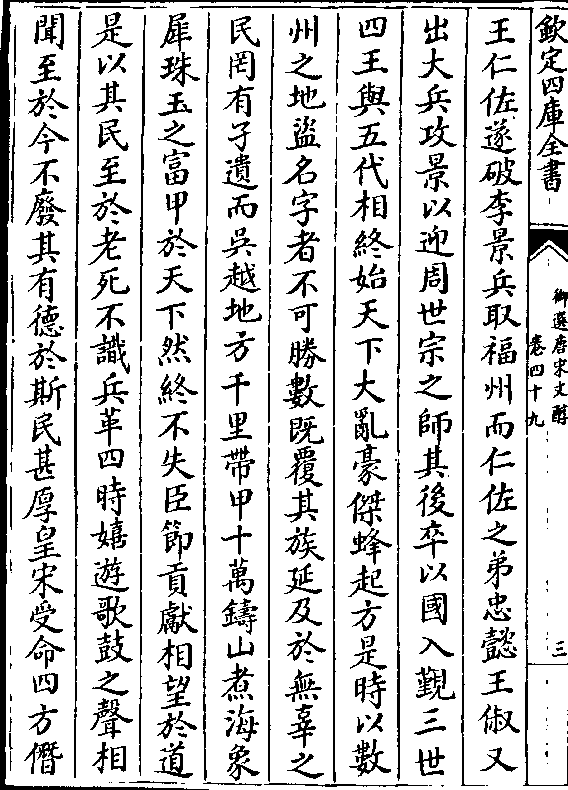 欽定四庫全書
御選唐宋文醇
卷四十九
三
王仁佐遂破李景兵取福州而仁佐之弟忠懿王俶又
出大兵攻景以迎周世宗之師其後卒以國入覲三世
四王與五代相終始天下大亂豪傑蜂起方是時以數
州之地盜名字者不可勝數既覆其族延及於無辜之
民罔有孑遺而吳越地方千里帶甲十萬鑄山煮海象
犀珠玉之富甲於天下然終不失臣節貢獻相望於道
是以其民至於老死不識兵革四時嬉遊歌鼓之聲相
聞至於今不廢其有德於斯民甚厚皇宋受命四方僭